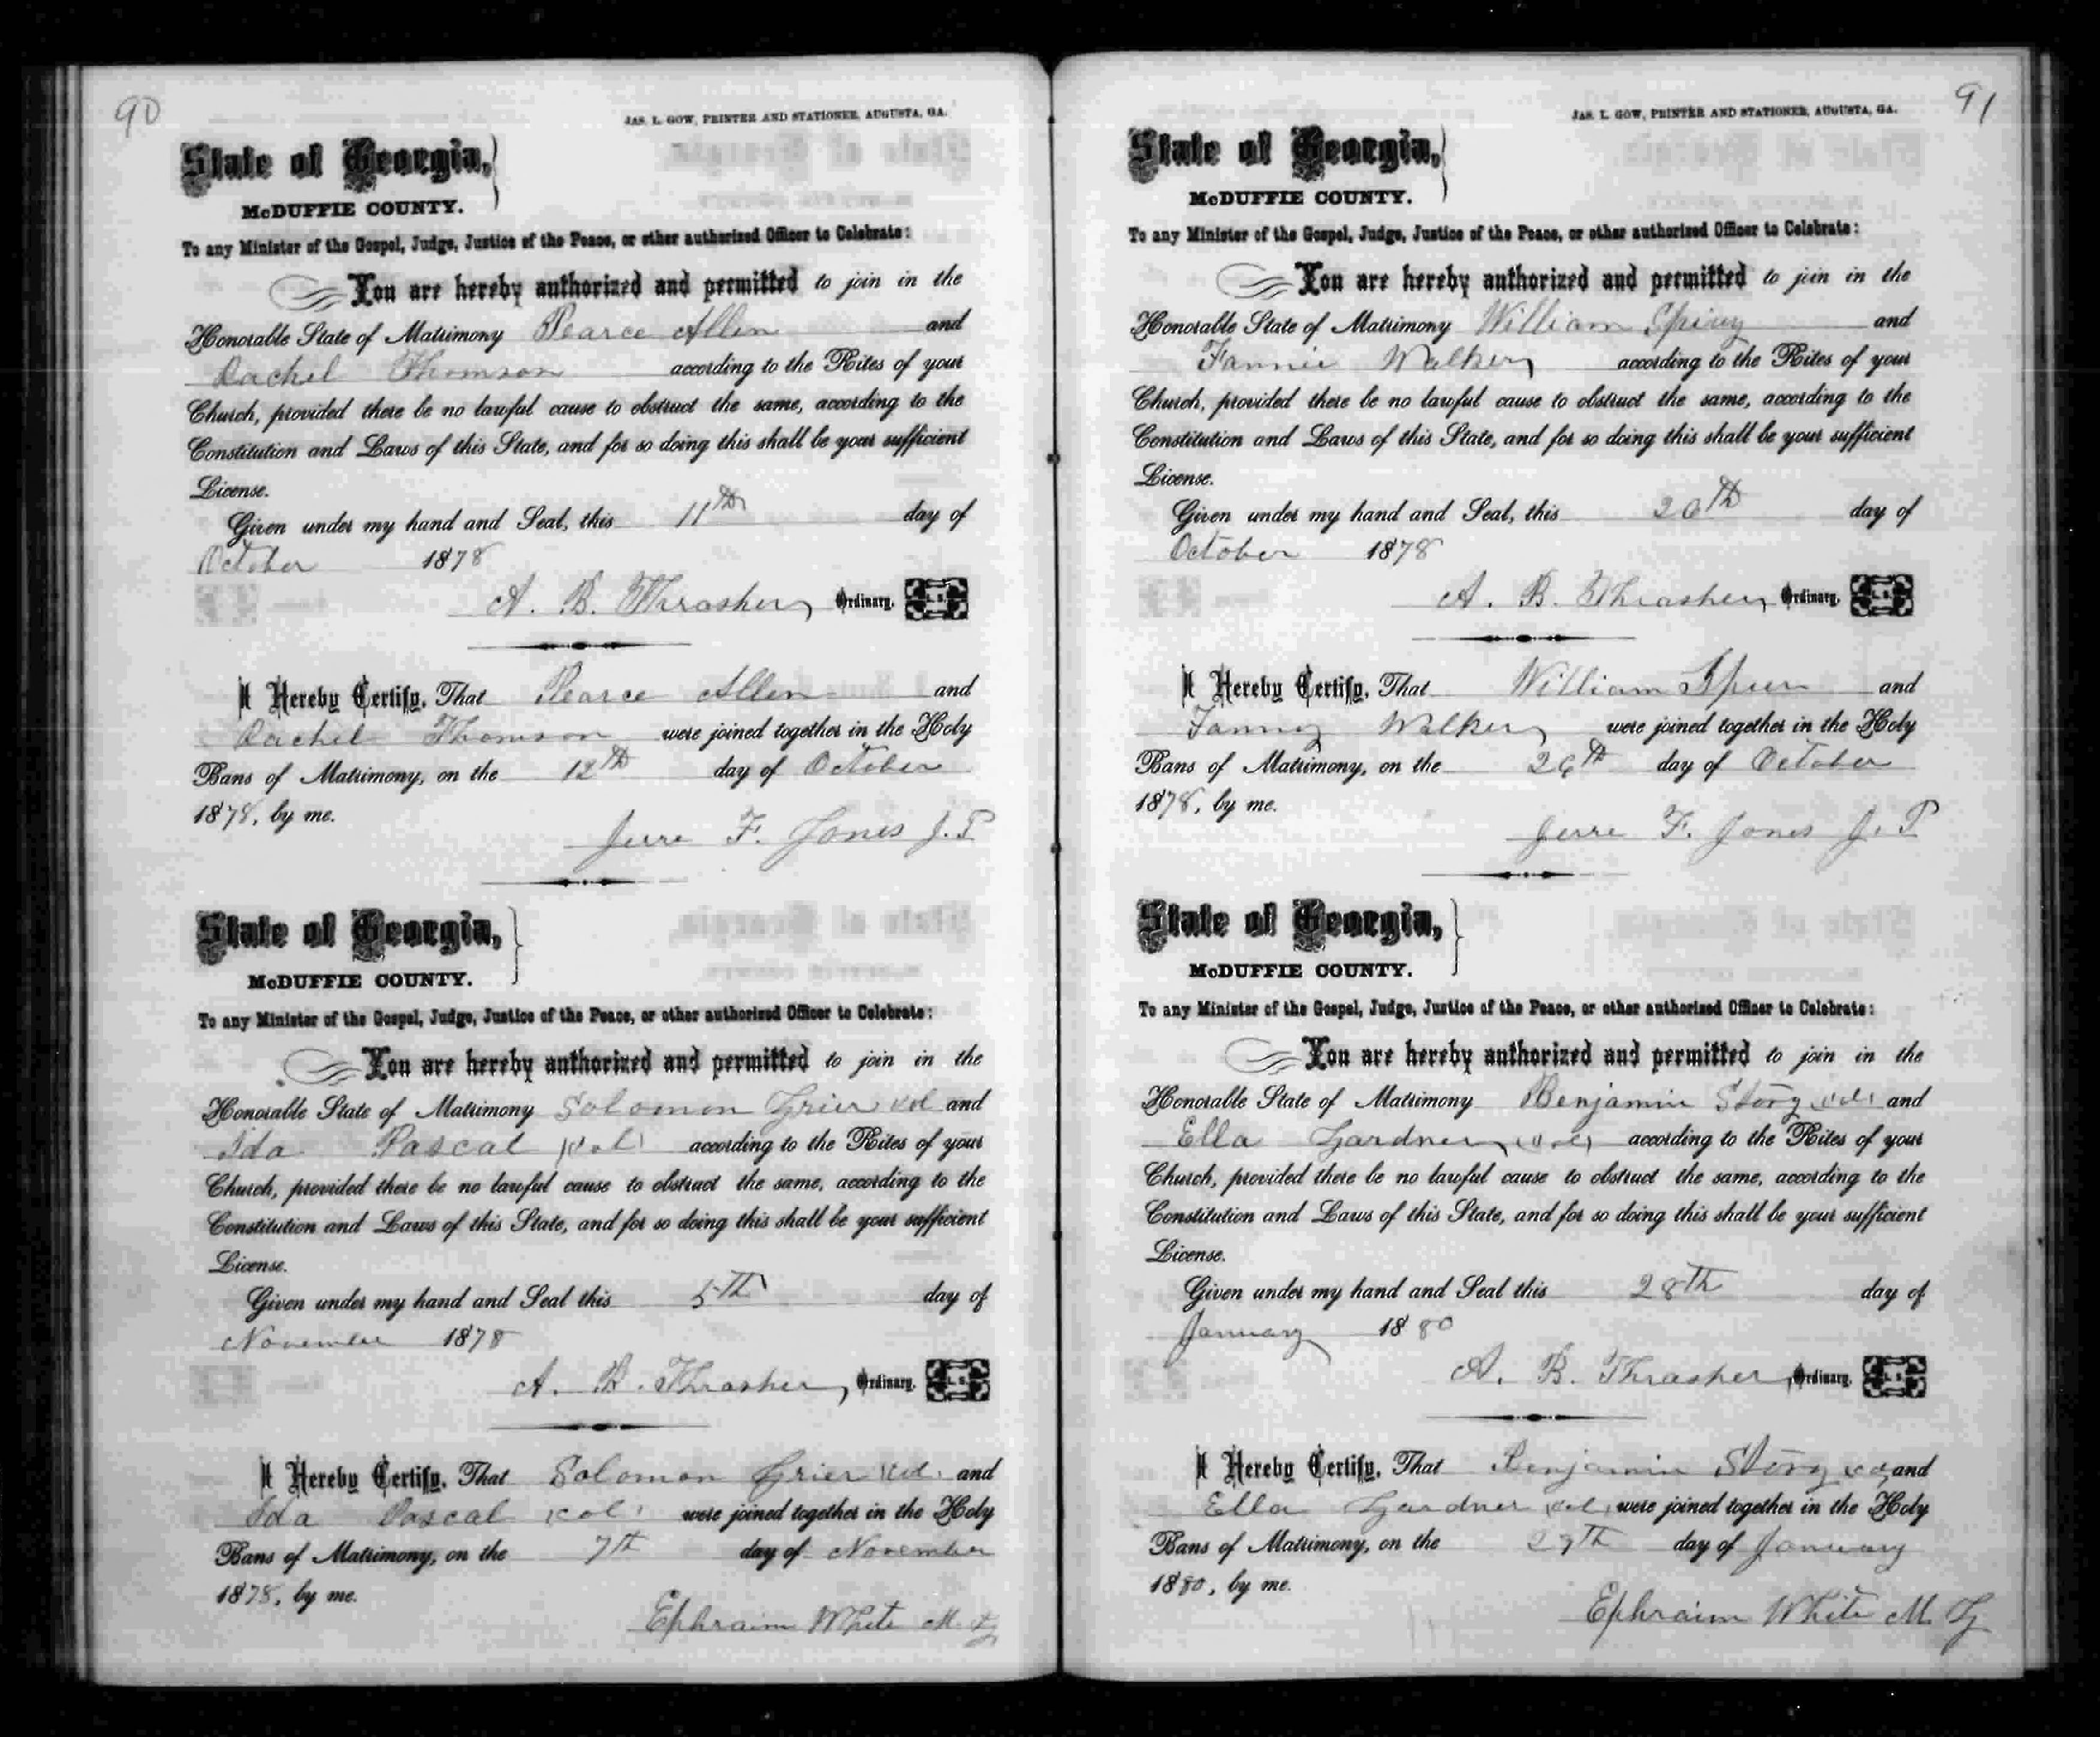 90
JAS. L. GOW, PRINTER AND STATIONER, AUGUSTA, GA.
State of Georgia,
McDUFFIE COUNTY.
To any Minister of the Gospel, Judge, Justice of the Peace, or other authorized Officer to Celebrate:
You are hereby authorized and permitted to join in the
Honorable State of Matrimony Pearce Allen and
Rachel Thomson according to the Rites of your
Church, provided there be no lawful cause to obstruct the same, according to the
Constitution and Laws of this State, and for so doing this shall be your sufficient
License.
Given under my hand and Seal, this 11th day of
October 1878
A. B. Thrasher, Ordinary. L.S.
I Hereby Certify, That Pearce Allen and
Rachel Thomson were joined together in the Holy
Bans of Matrimony, on the 12th day of October
1878, by me.
Jerre F. Jones J.P
State of Georgia,
McDUFFIE COUNTY.
To any Minister of the Gospel, Judge, Justice of the Peace, or other authorized Officer to Celebrate:
You are hereby authorized and permitted to join in the
Honorable State of Matrimony Solomon Grier col and
Ida Pascal (col) according to the Rites of your
Church, provided there be no lawful cause to obstruct the same, according to the
Constitution and Laws of this State, and for so doing this shall be your sufficient
License.
Given under my hand and Seal this 5th day of
November 1878
A. B. Thrasher, Ordinary. L.S.
I Hereby Certify, That Solomon Grier (col. and
Ida Pascal (col) were joined together in the Holy
Bans of Matrimony, on the 7th day of November
1878, by me.
Ephraim White M. G
91
JAS. L. GOW, PRINTER AND STATIONER, AUGUSTA, GA.
State of Georgia,
McDUFFIE COUNTY.
To any Minister of the Gospel, Judge, Justice of the Peace, or other authorized Officer to Celebrate:
You are hereby authorized and permitted to join in the
Honorable State of Matrimony William Spivey and
Fannie Walker according to the Rites of your
Church, provided there be no lawful cause to obstruct the same, according to the
Constitution and Laws of this State, and for so doing this shall be your sufficient
License.
Given under my hand and Seal, this 26th day of
October 1878
A. B. Thrasher, Ordinary. L.S.
I Hereby Certify, That William and
Fanny Walker were joined together in the Holy
Bans of Matrimony, on the 26th day of October
1878, by me.
Jerre F. Jones J. P
State of Georgia,
McDUFFIE COUNTY.
To any Minister of the Gospel, Judge, Justice of the Peace, or other authorized Officer to Celebrate:
You are hereby authorized and permitted to join in the
Honorable State of Matrimony Benjamin Story (col) and
Ella Gardner, (col) according to the Rites of your
Church, provided there be no lawful cause to obstruct the same, according to the
Constitution and Laws of this State, and for so doing this shall be your sufficient
License.
Given under my hand and Seal this 28th day of
January 1880
A. B. Thrasher, Ordinary. L.S.
I Hereby Certify, That Benjamin Story col and
Ella Gardner (col) were joined together in the Holy
Bans of Matrimony, on the 29th day of January
1880, by me.
Ephraim White M. G